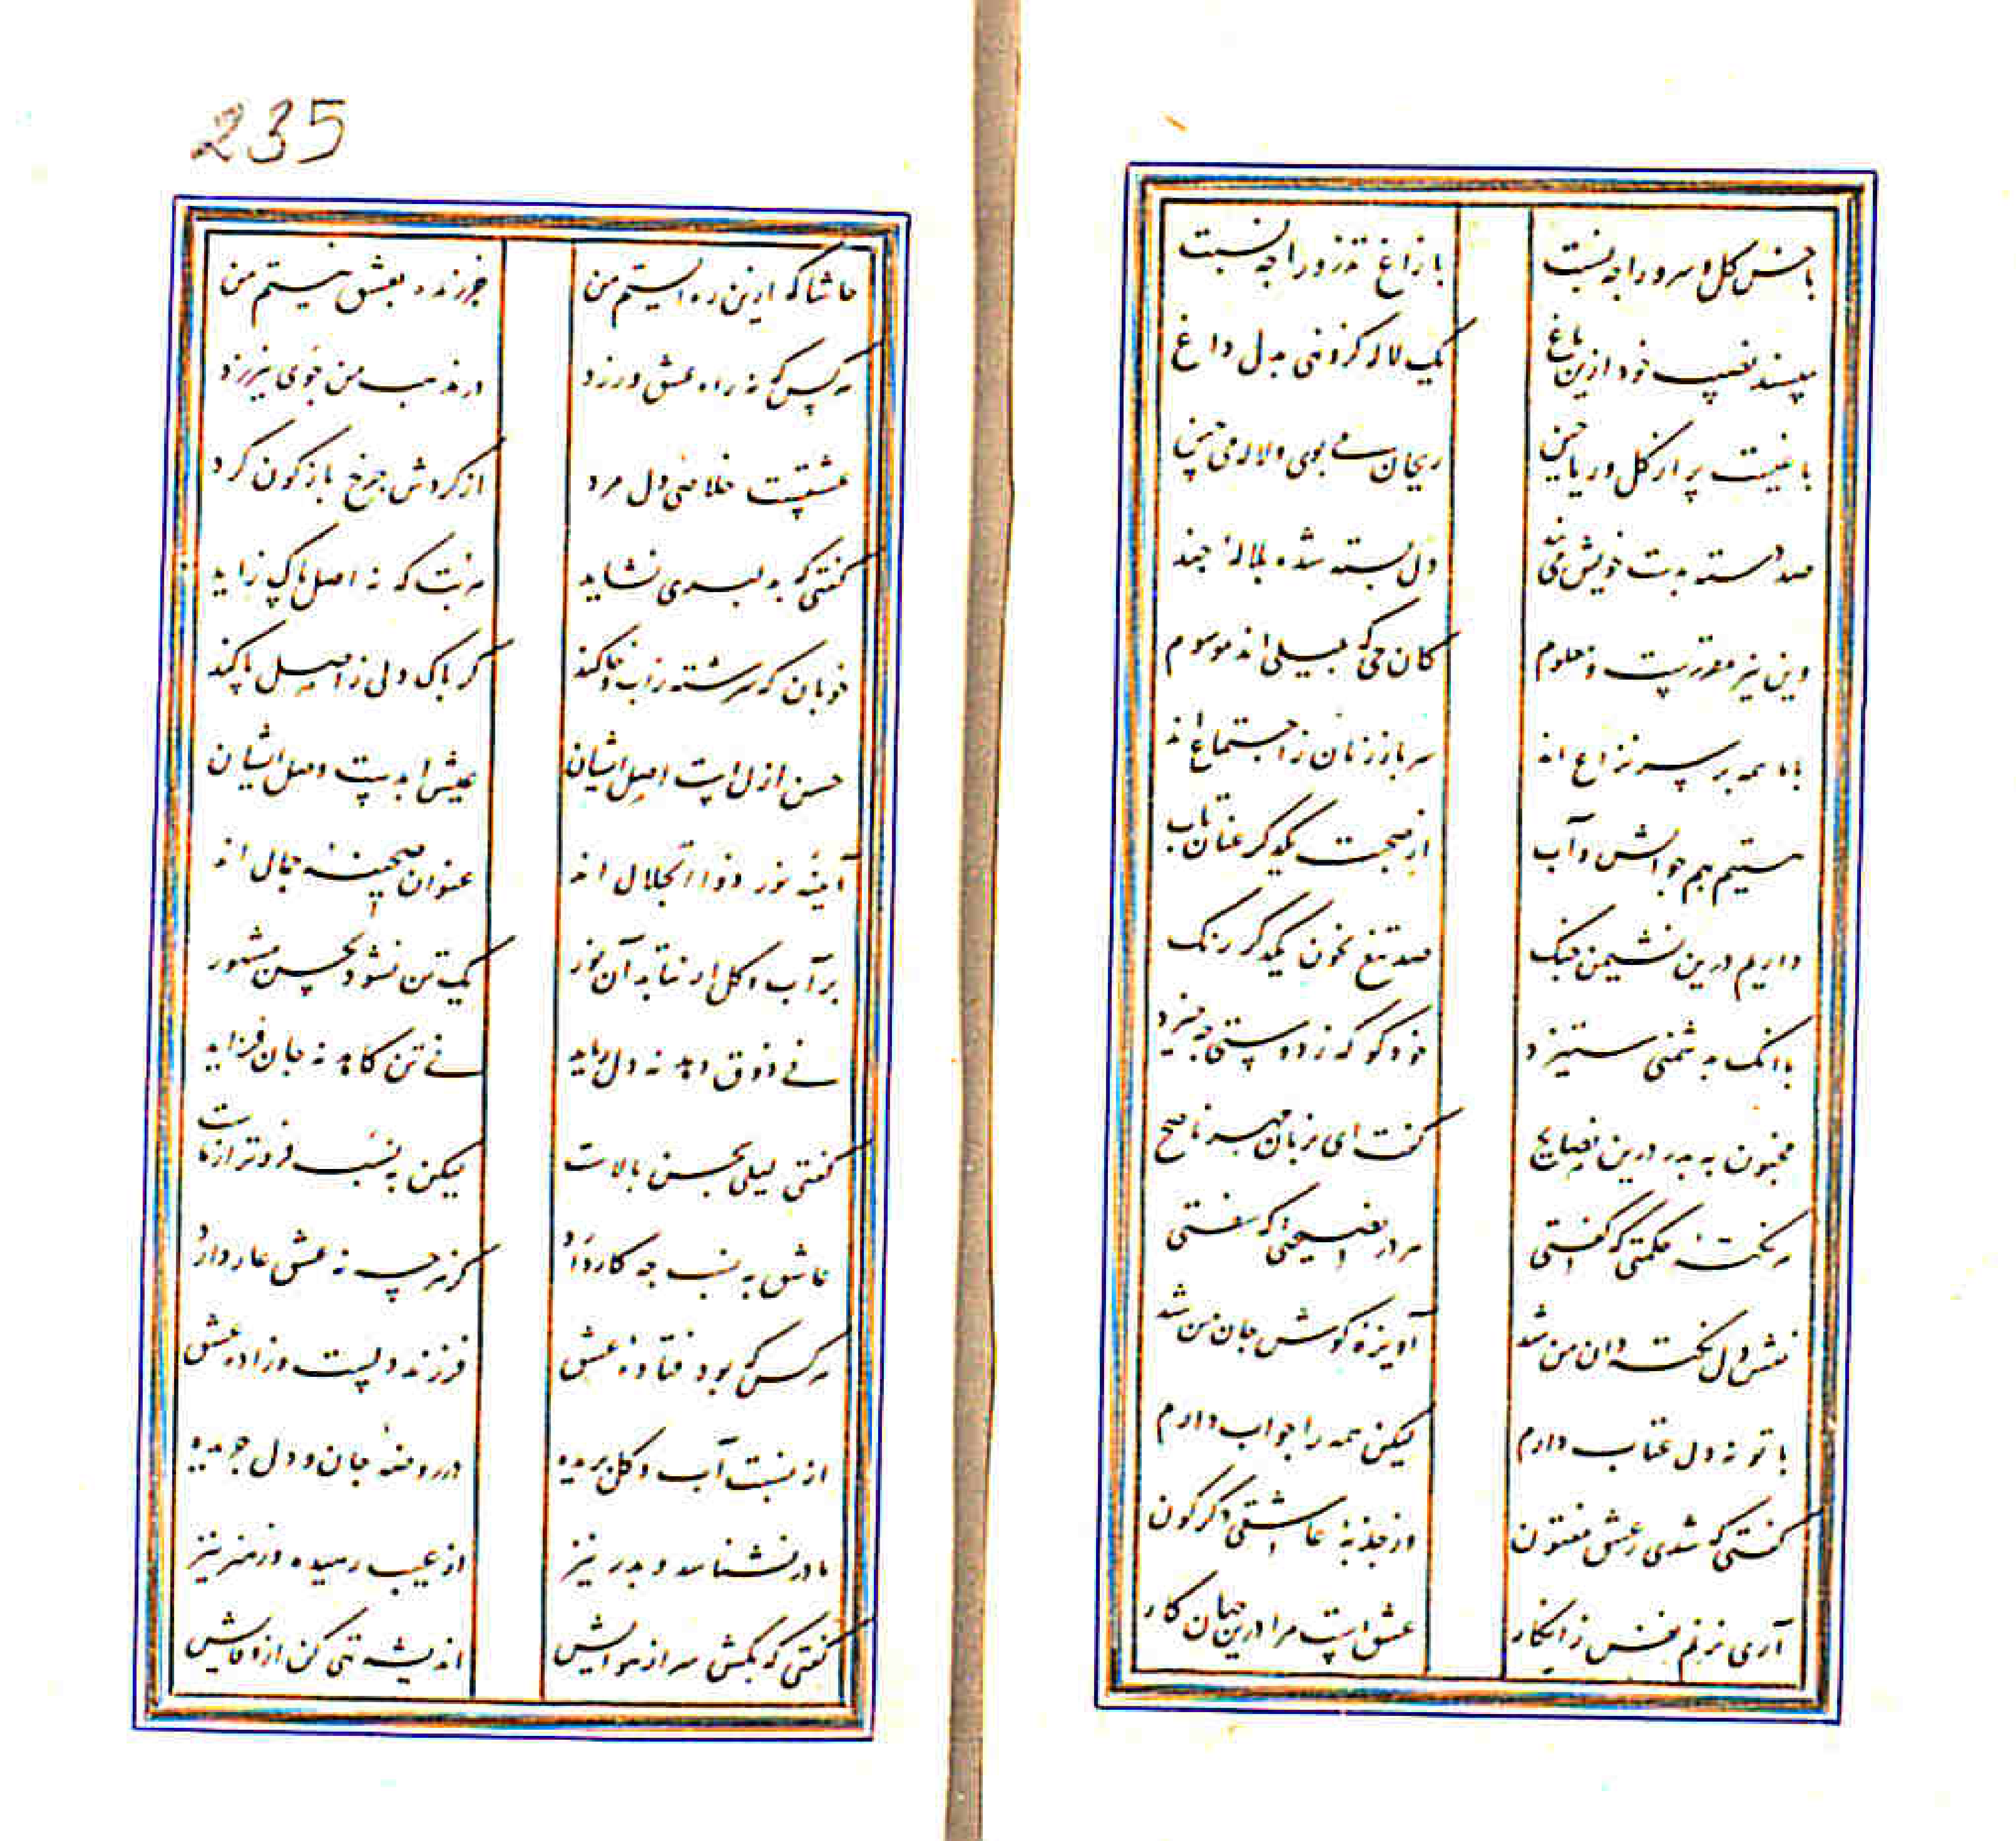 با خس گل و سرو را چه نسبت
با زاغ تذرو را چه نسبت
مپسند نصیب خود ازین باغ
یک لاله کزو نهی به دل داغ
باغیست پر از گل و ریاحین
ریحان می بوی و لاله می چین
صد دسته بدست خویش می بند
دل بسته شده بلاله چند
وین نیز مقررست و معلوم
کان حی که بلیلی اند موسوم
با ما همه بر سر نزاع اند
سرباززنان ز اجتماع اند
هستیم بهم چو آتش و آب
از صحبت یکدگر عنان تاب
داریم درین نشیمن جنگ
صد تیغ بخون یکدگر رنگ
با آنک به دشمنی ستیزد
خود گو که ز دوستی چه خیزد
مجنون به پدر درین نصایح
گفت ای بزبان مهر ناصح
هر نکته حکمتی که گفتی
هر در نصیحتی که سفتی
نقش دل نکته دان من شد
آویزه گوش جان من شد
با تو نه دل عتاب دارم
لیکن همه را جواب دارم
گفتی که شدی ز عشق مفتون
وز جذبه عاشقی دگرگون
آری نزنم نفس ز انکار
عشق است مرا درین جهان کار
235
حاشا که ازین ره ایستم من
جز زنده بعشق نیستم من
هر کس که نه راه عشق ورزد
در مذهب من جوی نیرزد
عشقست خلاصی دل مرد
از گردش چرخ باژگون گرد
گفتی که به لبری نشاید
هر بت که نه اصل پاک زاید
خوبان که سرشته ز آب و خاکند
گر پاک دلی ز اصل پاکند
حسن ازل است اصل ایشان
عیش ابدست وصل ایشان
آیینه نور ذوالجلال اند
عنوان صحیفه جمال اند
بر آب و گل ار نتابد آن نور
یک تن نشود بحسن مشهور
نی ذوق دهد نه دل رباید
نی تن کاهد نه جان فزاید
گفتی لیلی بحسن بالاست
لیکن به نسب فروتر از ماست
عاشق به نسب چه کار دارد
کز هر چه نه عشق عار دارد
هر کس که بود فتاده عشق
فرزند ویست و زاده عشق
از نسبت آب و گل بریده
در روضه جان و دل چریده
مادر نشناسد و پدر نیز
از عیب رمیده وز هنر نیز
گفتی که بکش سر از هوایش
اندیشه تهی کن از وفایش